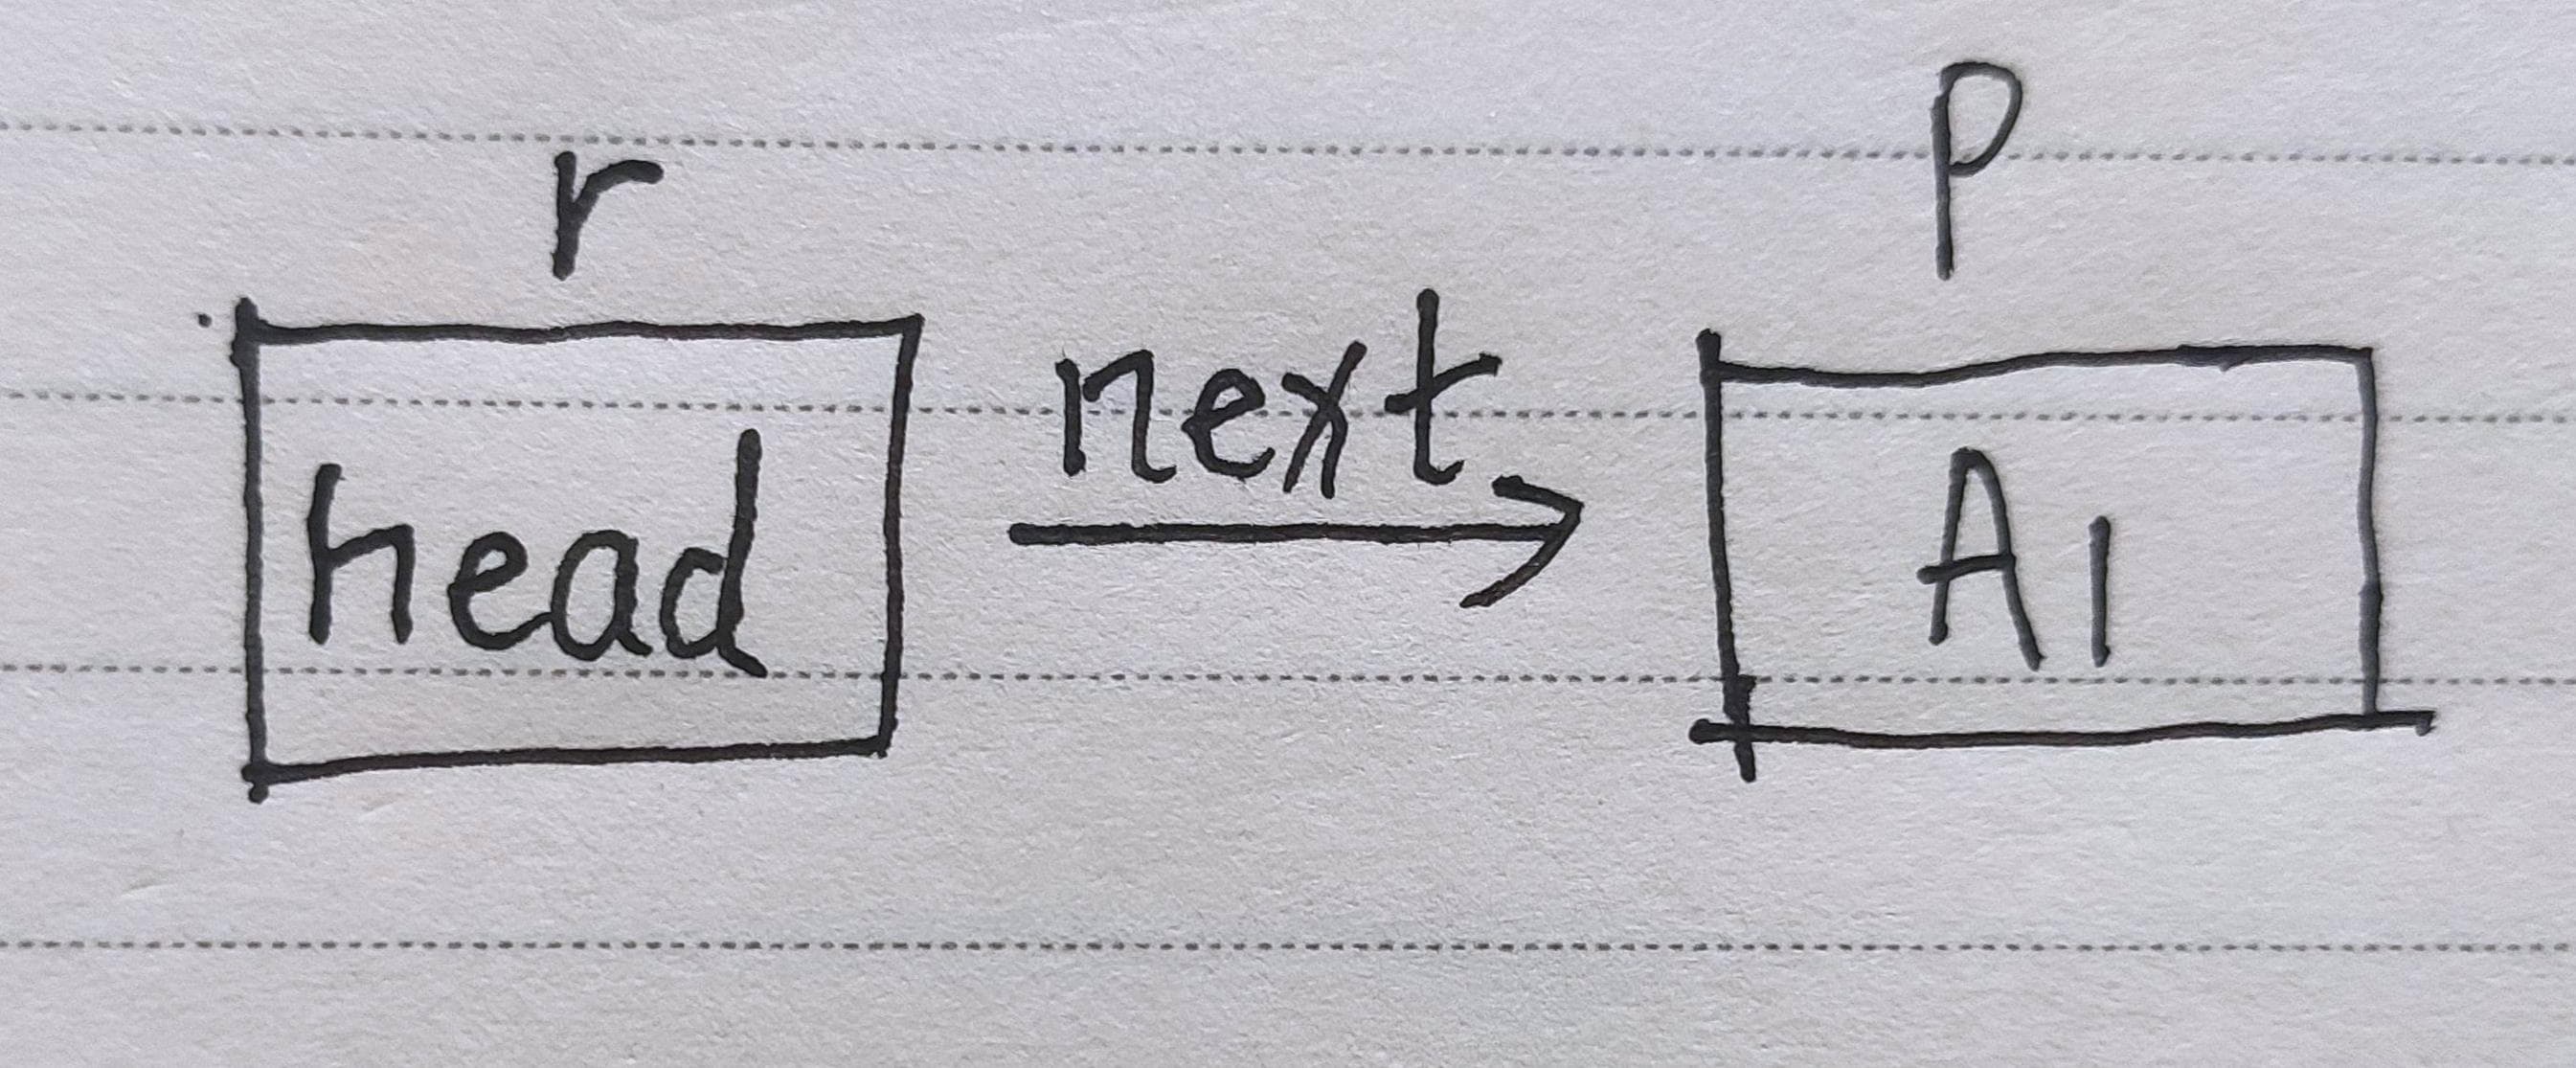 r P
next
head A1